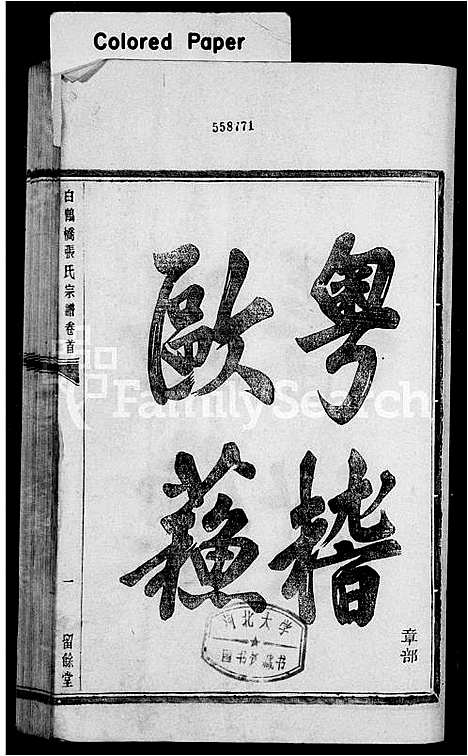 Colored Paper
558771
粤稽
歐蘓
章部
白鶴橋張氏宗譜卷首
一
留餘堂
河北大学
图书馆藏书
FamilySearch